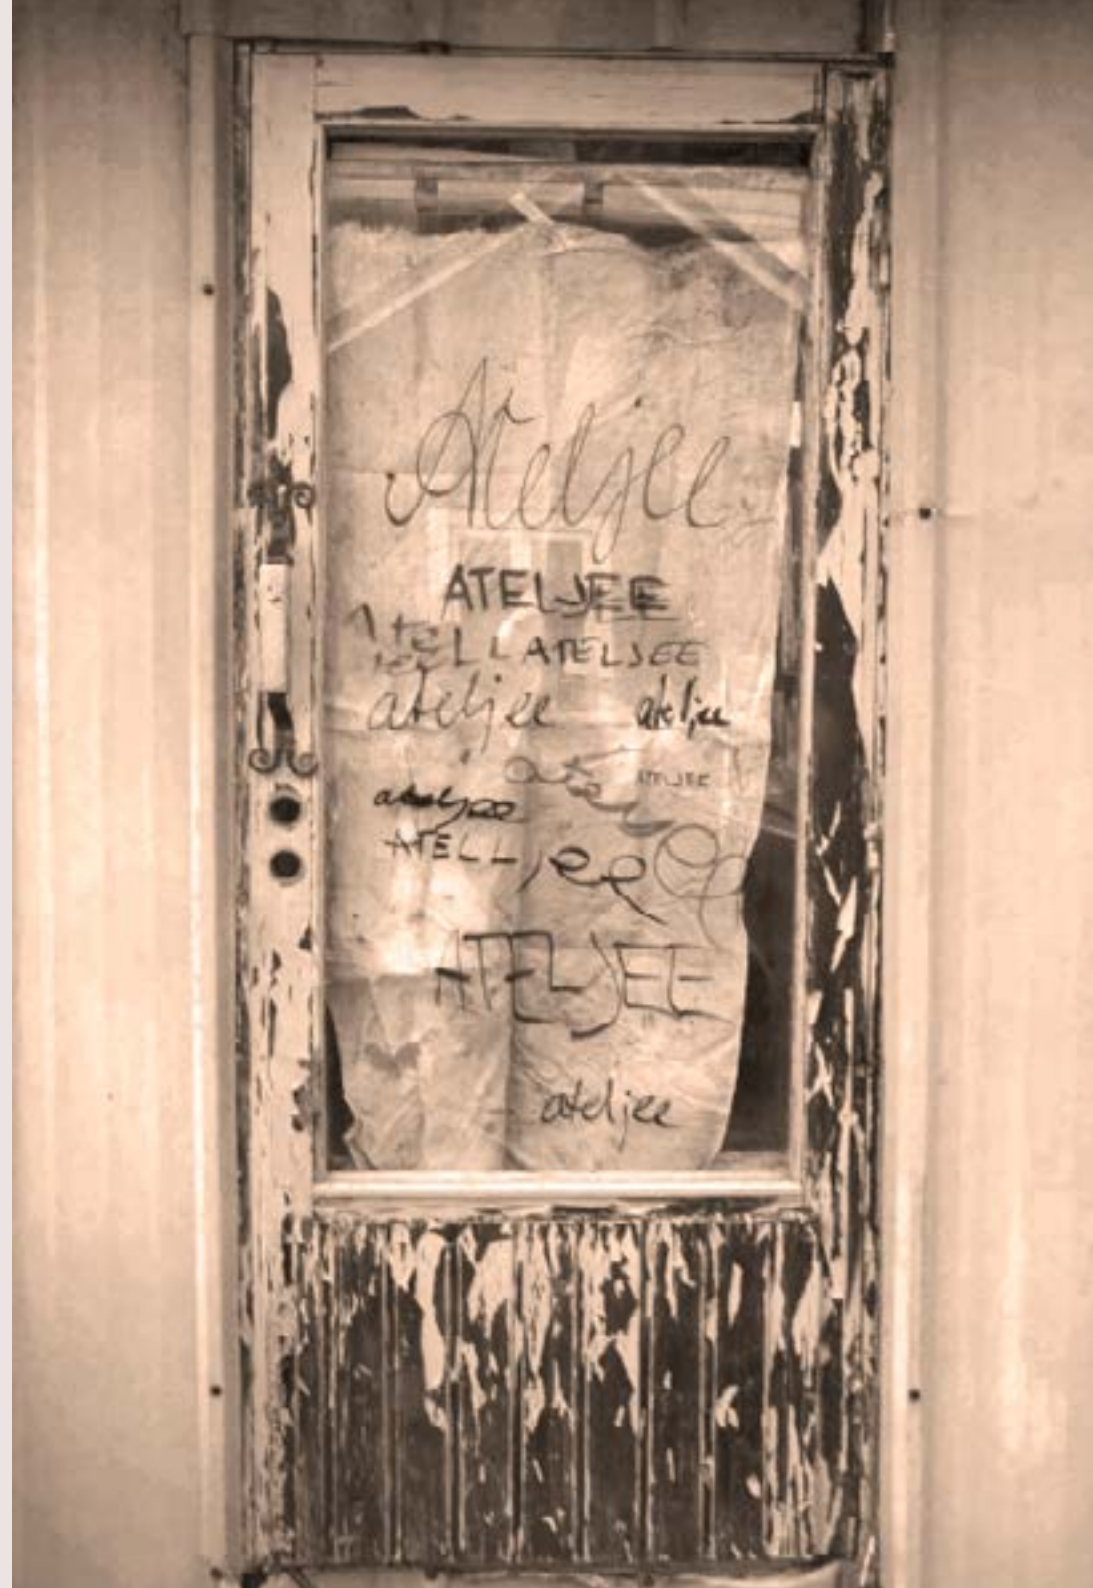 Ateljee
ATELJEE
Atell ATELJEE
ateljee ateljee
ate ATELJEE
ateljee
ATELL jee
ATELJEE
ateljee